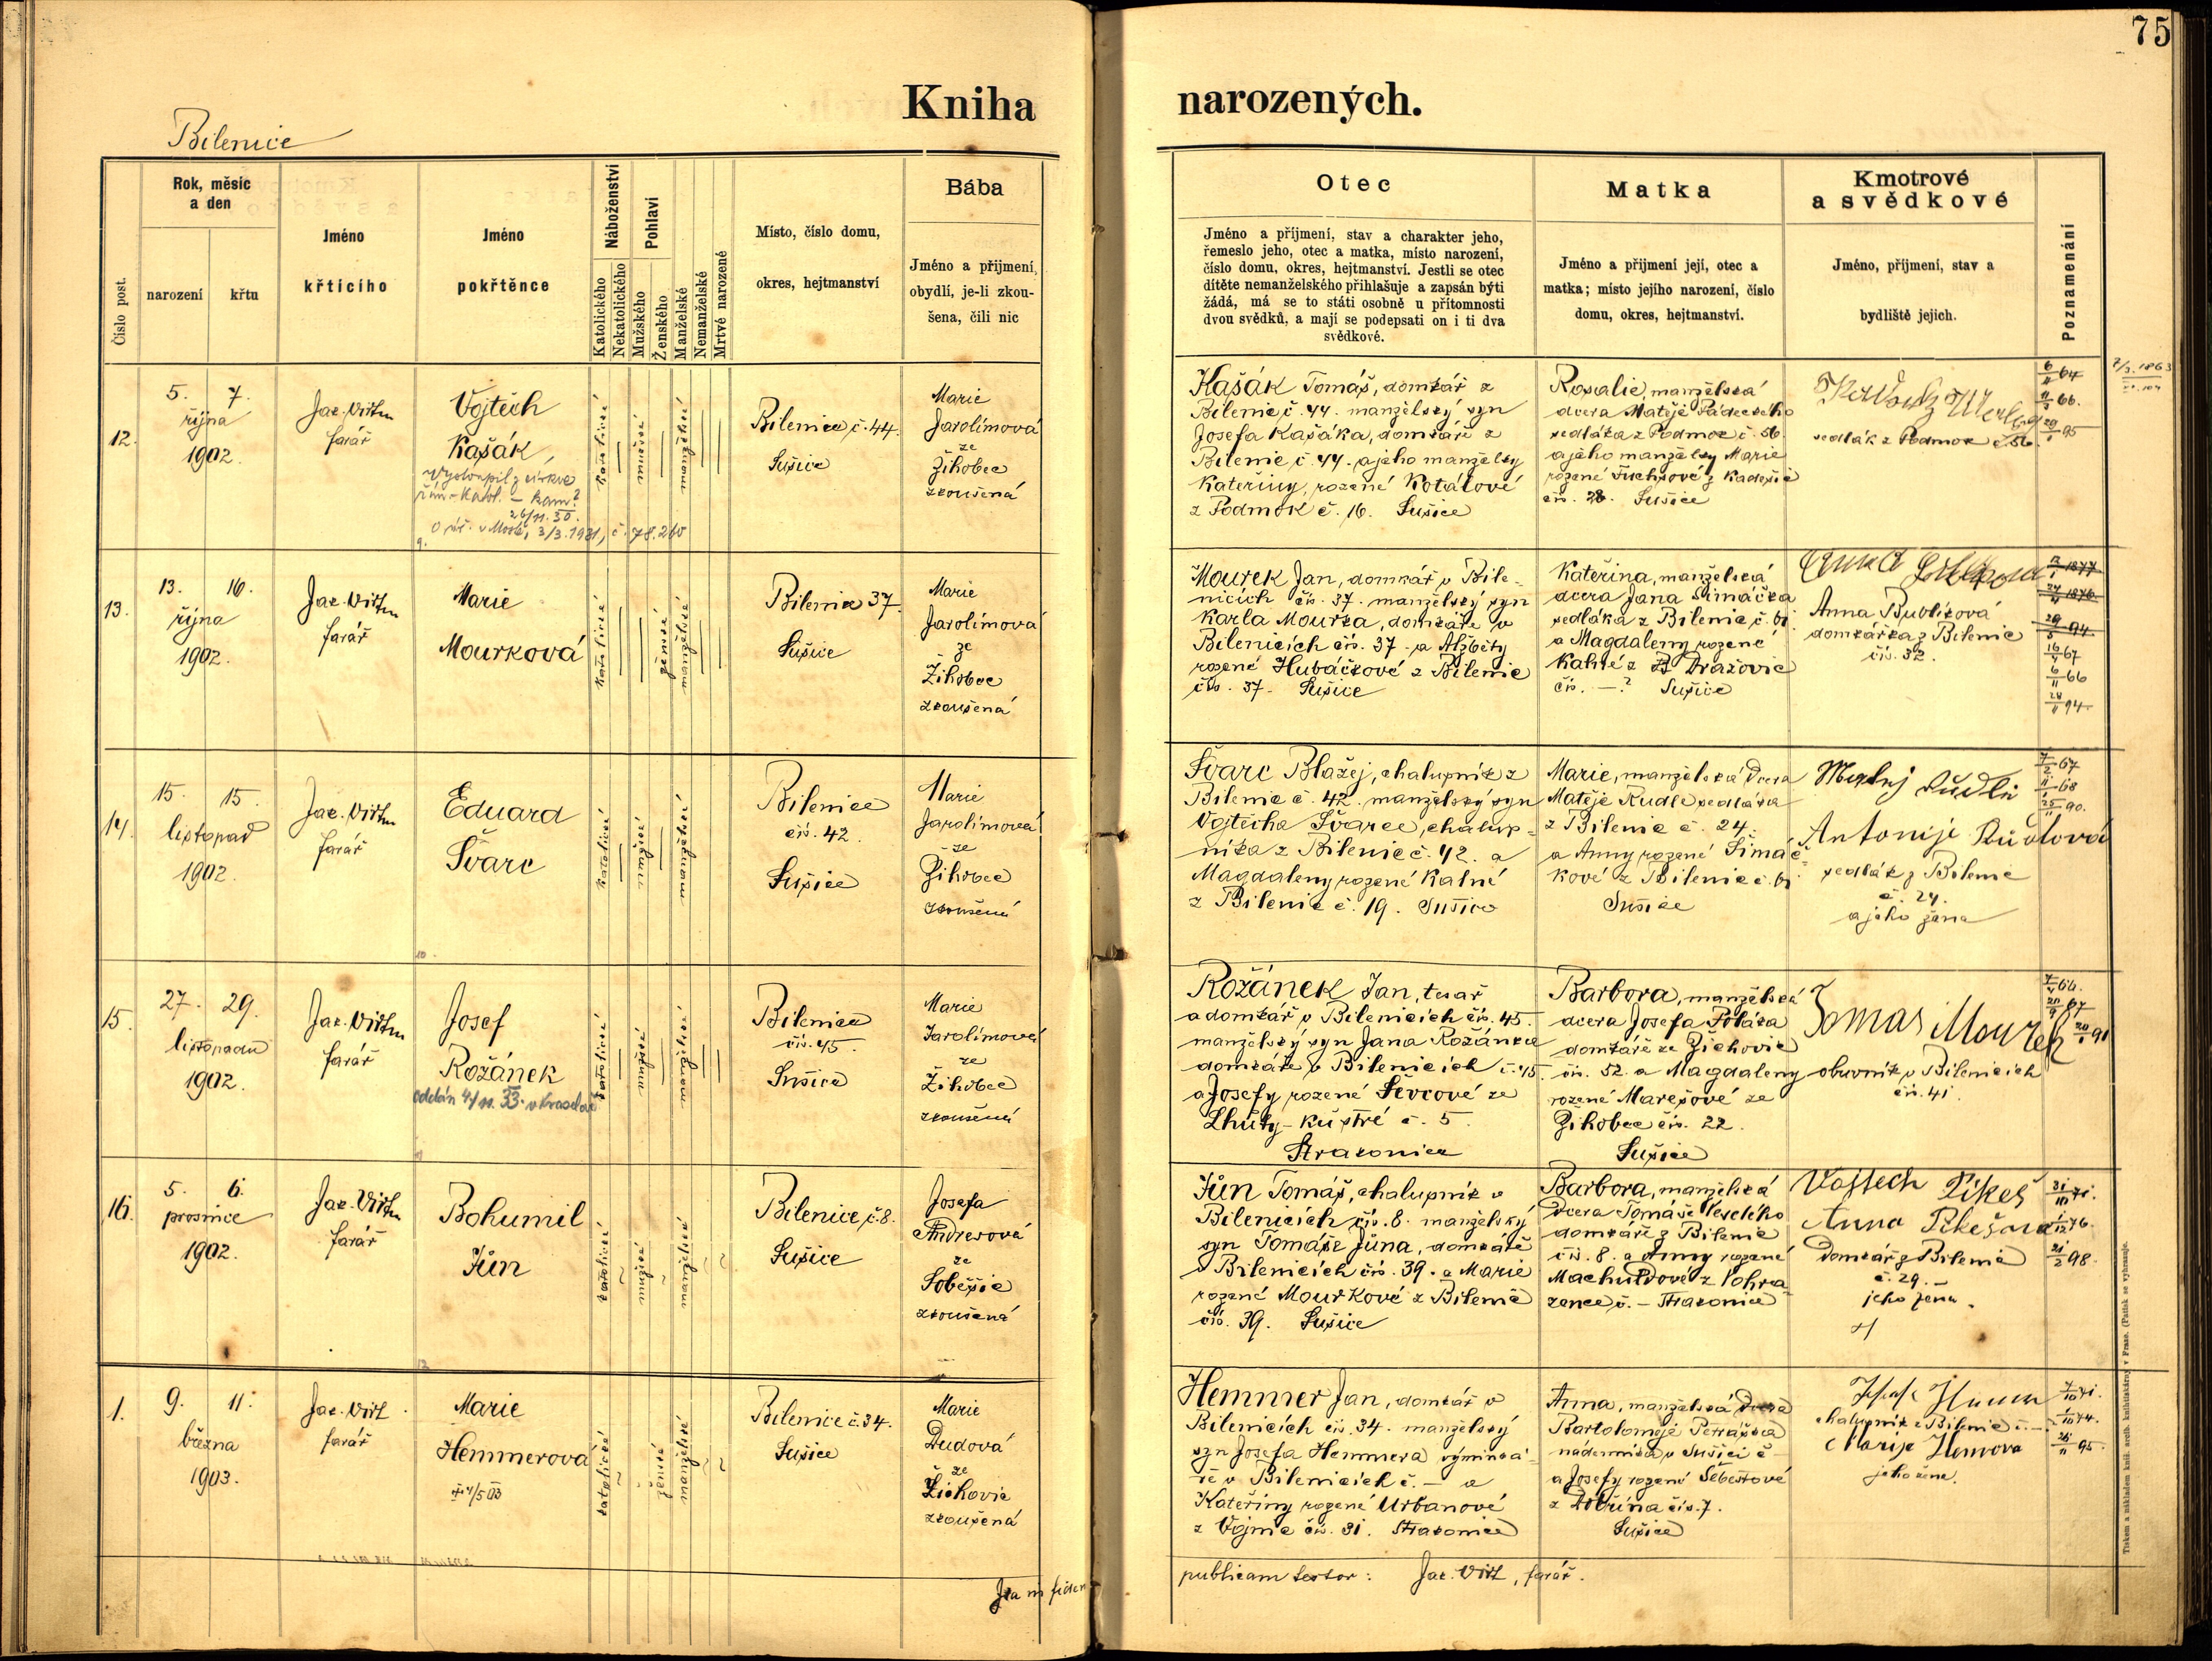 75
Kniha narozených.
Bilenice
Číslo post.
Rok, měsíc
a den
narození
křtu
Jméno
křticího
Jméno
pokřtěnce
Náboženství
Katolického
Nekatolického
Pohlaví
Mužského
Ženského
Manželské
Nemanželské
Mrtvě narozené
Místo, číslo domu,
okres, hejtmanství
Bába
Jméno a příjmení,
obydlí, je-li zkou-
šena, čili nic
Otec
Jméno a příjmení, stav a charakter jeho,
řemeslo jeho, otec a matka, místo narození,
číslo domu, okres, hejtmanství. Jestli se otec
dítěte nemanželského přihlašuje a zapsán býti
žádá, má se to státi osobně u přítomnosti
dvou svědků, a mají se podepsati on i ti dva
svědkové.
Matka
Jméno a příjmení její, otec a
matka; místo jejího narození, číslo
domu, okres, hejtmanství.
Kmotrové
a svědkové
Jméno, příjmení, stav a
bydliště jejich.
Poznamenání
12.
5. 7.
října
1902.
Jak. Virt
farář
Vojtěch
Kašák
Vystoupil z církve
řím-kat. - kam?
26/11. 30.
3/3. 1931, č. 78.260
katolické
mužské
manželské
Bilenice č. 44.
Sušice
Marie
Jarolímová
ze
Žihobec
zkoušená
Kašák Tomáš, domkář z
Bilenic č. 44. manželský syn
Josefa Kašáka, domkáře z
Bilenic č. 44. a jeho manželky
Kateřiny, rozené Kotálové
z Podmok č. 16. Sušice
Rosalie, manželská
dcera Matěje Pádeckého
sedláka z Podmok č. 56
a jeho manželky Marie
rozené Fuchsové z Kadešic
čís. 28. Sušice
sedlák z Podmok č. 56.
6/11 64
66.
95
13.
13. 16.
října
1902.
Jak. Virt
farář
Marie
Mourková
katolické
ženské
manželské
Bilenice 37.
Sušice
Marie
Jarolímová
ze
Žihobec
zkoušená
Mourek Jan, domkář v Bile-
nicích čís. 37. manželský syn
Karla Mourka, domkáře v
Bilenicích čís. 37 a Alžběty
rozené Hubáčkové z Bilenic
čís. 37. Sušice
Kateřina, manželská
dcera Jana Šimáčka
sedláka z Bilenic č. 6
a Magdaleny rozené
Kalné z Dražovic
čís. —? Sušice
Anna
Anna Bublíková
domkářka z Bilenic
čís. 32.
1877
1876
94
67
66
94
14.
15. 15.
listopad
1902.
Jak. Virt
farář
Eduard
Švarc
katolické
mužské
manželské
Bilenice
čís. 42.
Sušice
Marie
Jarolímová
ze
Žihobec
zkoušená
Švarc Blažej, chalupník z
Bilenic č. 42. manželský syn
Vojtěcha Švarce, chalup-
níka z Bilenic č. 42. a
Magdaleny rozené Kalné
z Bilenic č. 19. Sušice
Marie, manželská dcera
Matěje Rudle sedláka
z Bilenic č. 24.
a Anny rozené Šimáč-
kové z Bilenic č. 6
Sušice
Matěj Rudl
Antonije Rudlová
sedlák z Bilenic
č. 24.
a jeho žena
67
68
90.
15.
27. 29.
listopadu
1902.
Jak. Virt
farář
Josef
Rožánek
oddán 4/11. 33.
katolické
mužské
manželské
Bilenice
čís. 45.
Sušice
Marie
Jarolímová
ze
Žihobec
zkoušená
Rožánek Jan, tesař
a domkář v Bilenicích čís. 45.
manželský syn Jana Rožánka
domkáře v Bilenicích č. 45.
a Josefy rozené Ševcové ze
Lhůty-Kůstré č. 5.
Strakonice
Barbora, manželská
dcera Josefa Poláka
domkáře ze Žichovic
čís. 52. a Magdaleny
rozené Marešové ze
Žihobec čís. 22.
Sušice
Tomas Mourek
obuvník v Bilenicích
čís. 41.
66.
67
91
16.
5. 6.
prosince
1902.
Jak. Virt
farář
Bohumil
Jůn
katolické
mužské
manželské
Bilenice č. 8.
Sušice
Josefa
Andresová
ze
Soběšic
zkoušená
Jůn Tomáš, chalupník v
Bilenicích čís. 8. manželský
syn Tomáše Jůna, domkáře
v Bilenicích čís. 39. a Marie
rozené Mourkové z Bilenic
čís. 39. Sušice
Barbora, manželská
dcera Tomáše Veselého
domkáře z Bilenic
čís. 8. a Anny rozené
Machuldové z Pohra-
zence č. — Strakonice
Vojtech Pikeš
Anna Pikešova
domkář z Bilenic
č. 29.
jeho žena.
71.
76.
98.
1.
9. 11.
března
1903.
Jak. Virt
farář
Marie
Hemmerová
4/5 03
katolické
ženské
manželské
Bilenice č. 34.
Sušice
Marie
Dudová
ze
Žichovic
zkoušená
Hemmer Jan, domkář v
Bilenicích čís. 34. manželský
syn Josefa Hemmera výminká-
ře v Bilenicích č. — a
Kateřiny rozené Urbanové
z Vojnic čís. 31. Strakonice
Anna, manželská dcera
Bartoloměje Petráška
nádenníka v Sušici č —
a Josefy rozené Šebestové
z Dobřína čís. 7.
Sušice
chalupník z Bilenic č. —
Marije
jeho žena.
71.
74.
95.
Ita in fidem
publicam testor: Jak. Virt, farář.